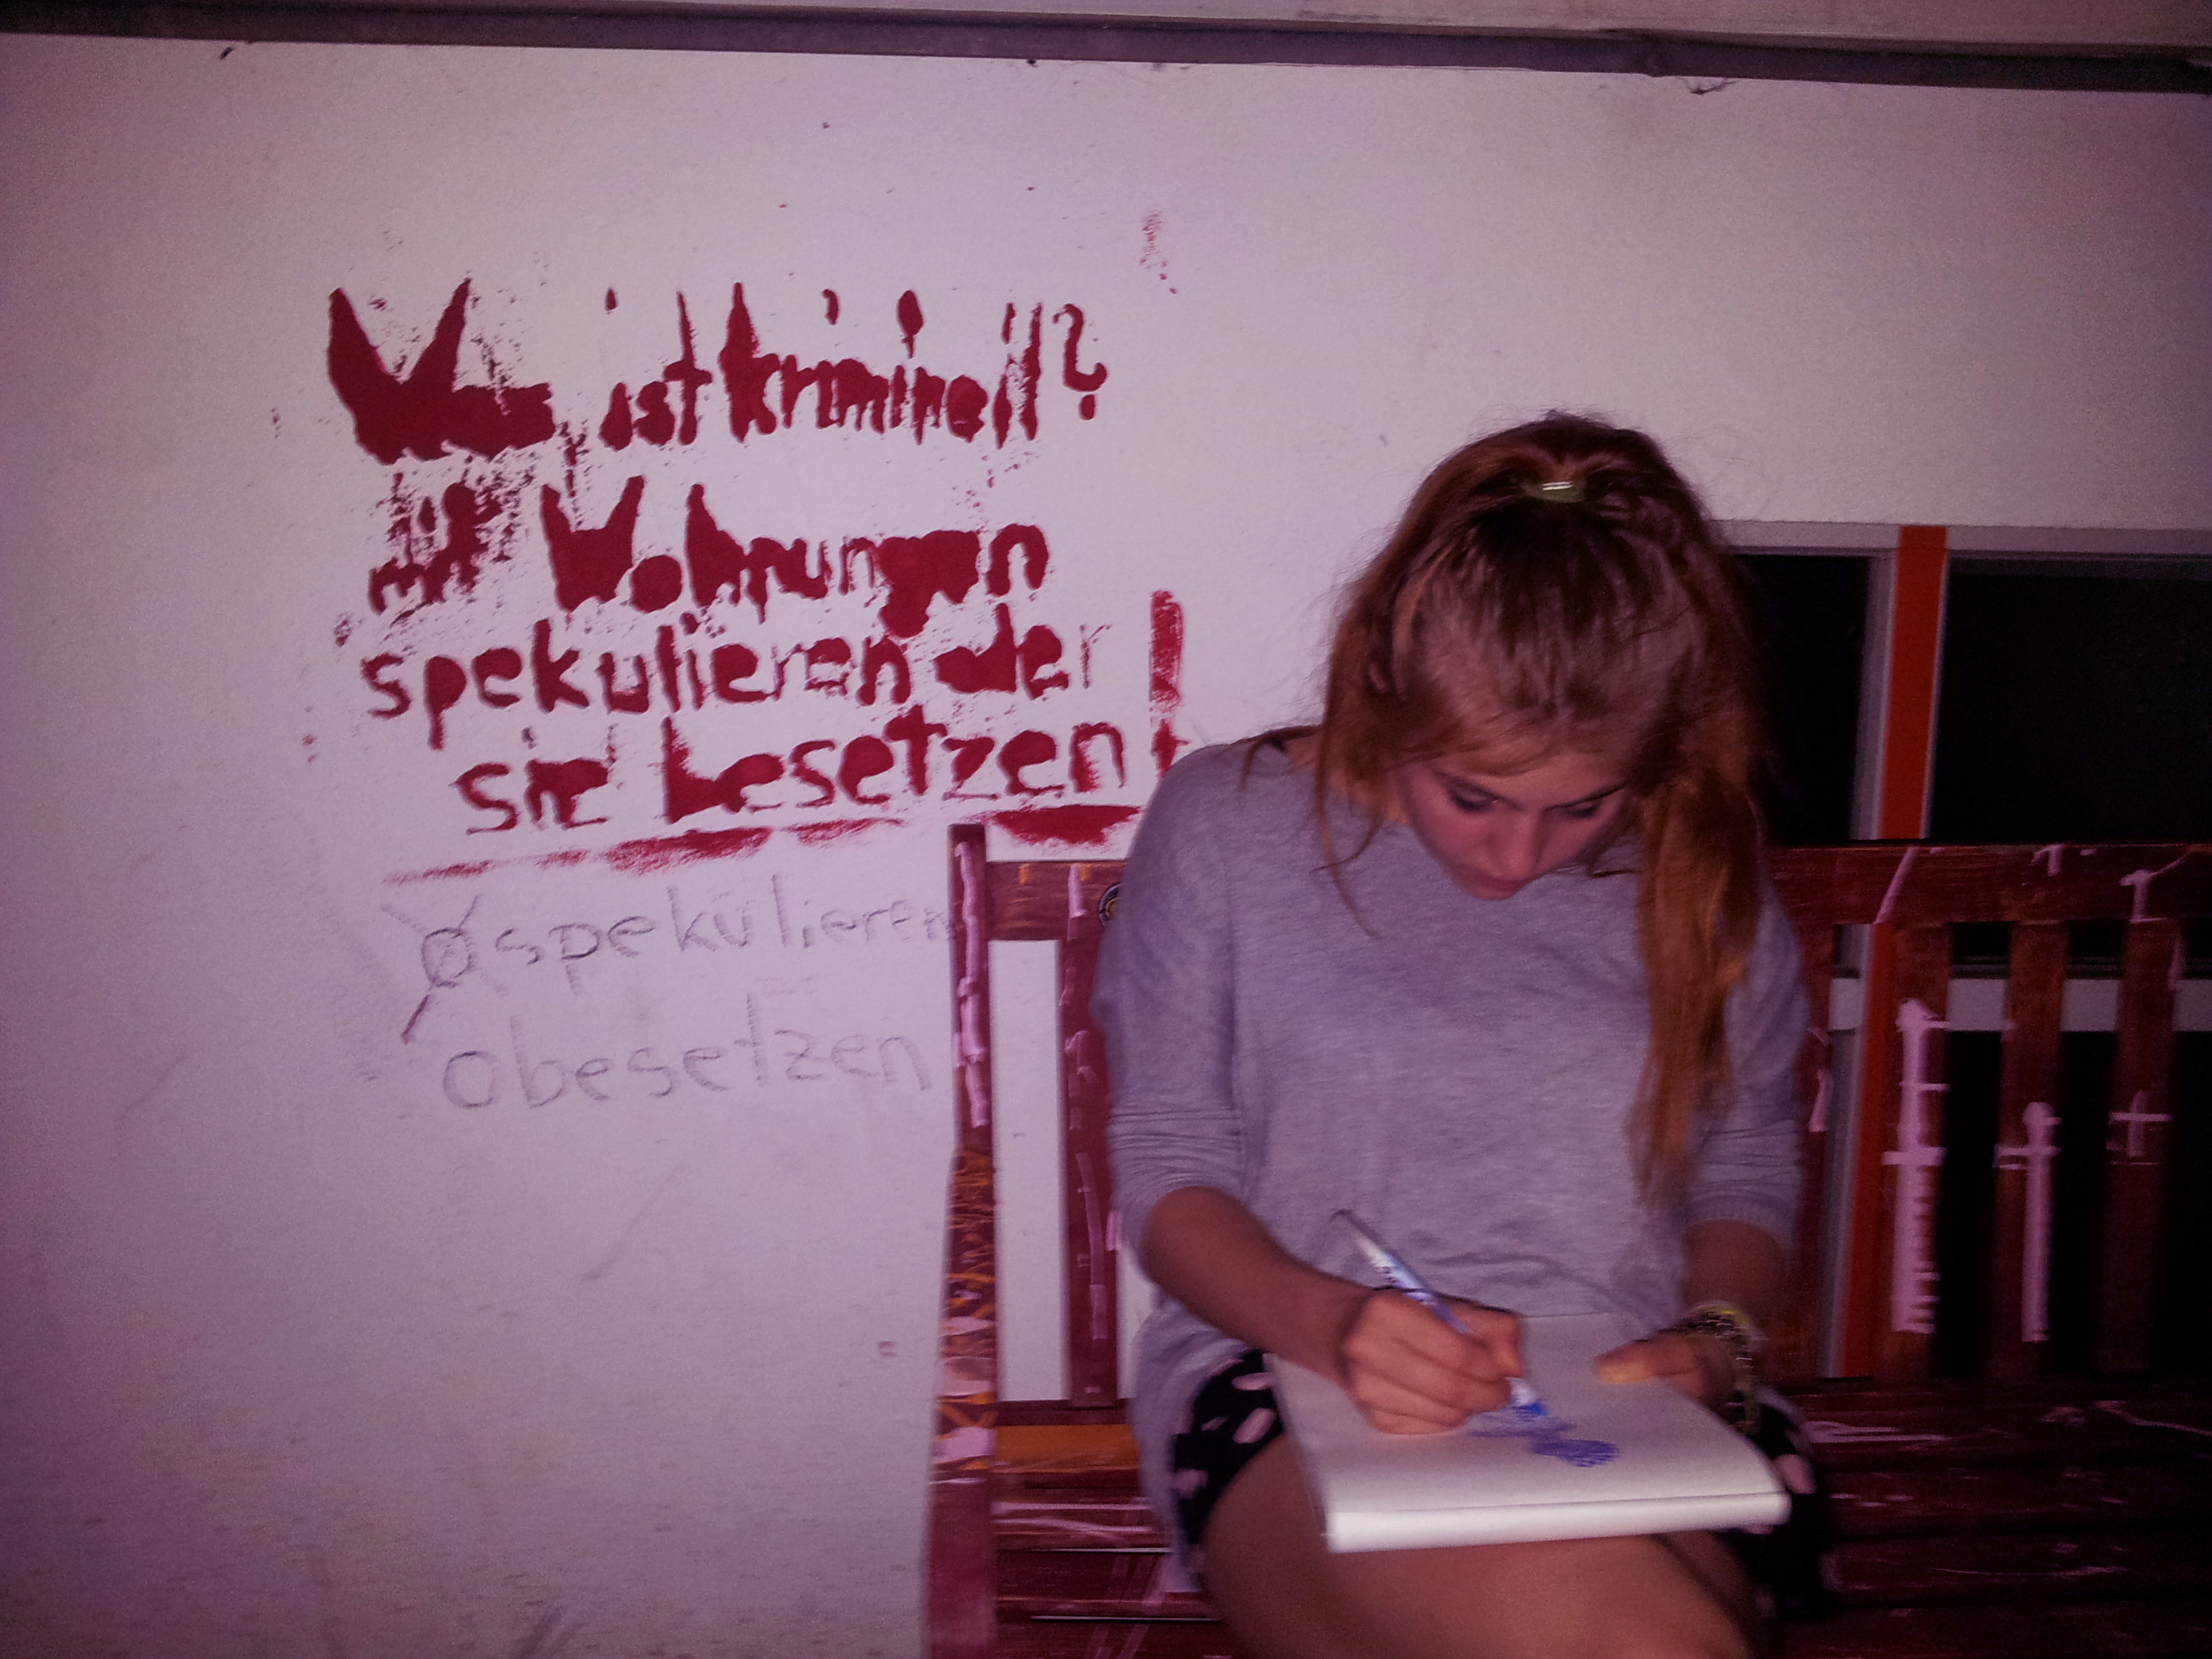 Was ist kriminell?
mit Wohnungen
spekulieren oder
sie besetzen!
spekulieren
O besetzen